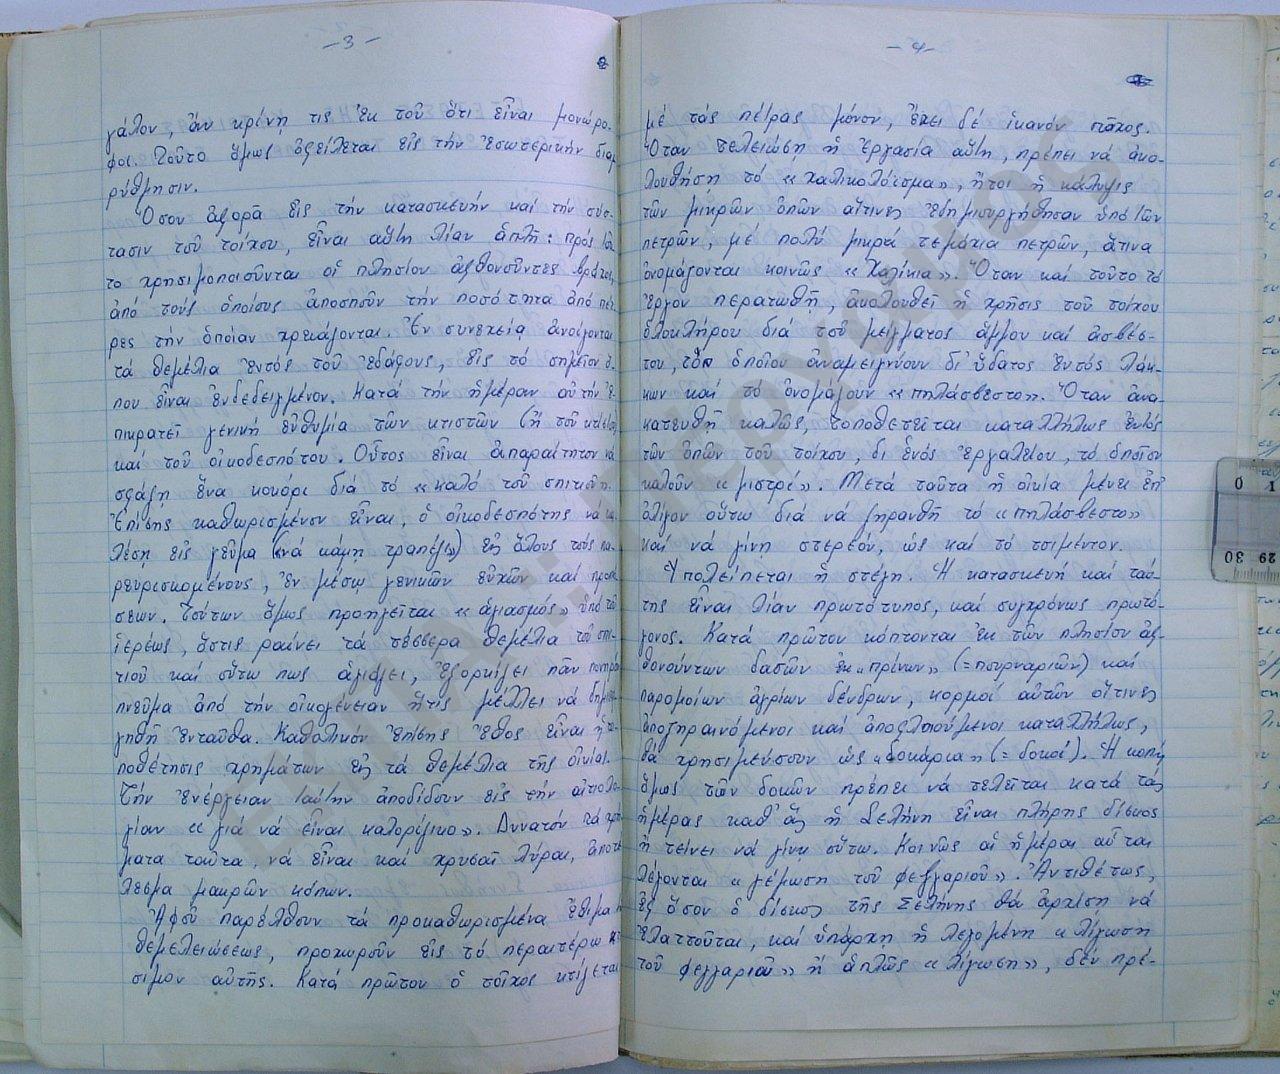 - 3 -
γάλον, ἄν κρίνῃ τις ἐκ τοῦ ὅτι εἶναι μονώρο-
φοι. Τοῦτο ὅμως ὀφείλεται εἰς τήν ἐσωτερικήν διαρ
ρύθμησιν.
Ὅσον ἀφορᾶ εἰς τήν κατασκευήν καί τήν σύσ-
τασιν τοῦ τοίχου, εἶναι αὕτη λίαν ἁπλῆ: πρός τοῦ
το χρησιμοποιοῦνται οἱ πλησίον ἀφθονοῦντες βράχοι,
ἀπό τούς ὁποίους ἀποσποῦν τήν ποσότητα ἀπό πέτ
ρες τήν ὁποίαν χρειάζονται. Ἐν συνεχείᾳ ἀνοίγονται
τά θεμέλια ἐντός τοῦ ἐδάφους, εἰς τό σημεῖον ὅ-
που εἶναι ἐνδεδειγμένον. Κατά τήν ἡμέραν αὐτήν ἐ-
πικρατεῖ γενική εὐθυμία τῶν κτιστῶν (ἤ τοῦ κτίστου)
καί τοῦ οἰκοδεσπότου. Οὗτος εἶναι ἀπαραίτητον νά
σφάξῃ ἕνα κοκόρι διά τό «καλό τοῦ σπιτιοῦ».
Ἐπίσης καθωρισμένον εἶναι, ὁ οἰκοδεσπότης νά κα
λέσῃ εἰς γεῦμα (νά κάμῃ τραπέζι) εἰς ὅλους τούς πα-
ρευρισκομένους, ἐν μέσῳ γενικῶν εὐχῶν καί προπό
σεων. Τούτων ὅμως προηγεῖται «ἁγιασμός» ὑπό τοῦ
ἱερέως, ὅστις ραίνει τά τέσσερα θεμέλια τοῦ σπι-
τιοῦ καί οὕτω πως ἁγιάζει, ἐξορκίζει πᾶν πονηρό
πνεῦμα ἀπό τήν οἰκογένειαν ἥτις μέλλει νά δημιουρ
γηθῆ ἐνταῦθα. Καθολικόν ἐπίσης ἔθος εἶναι ἡ το-
ποθέτησις χρημάτων εἰς τά θεμέλια τῆς οἰκίας.
Τήν ἐνέργειαν ταύτην ἀποδίδουν εἰς τήν αἰτιολο-
γίαν «γιά νά εἶναι καλορίζικο». Δυνατόν τά χρή
ματα ταῦτα, νά εἶναι καί χρυσαῖ λῦραι, ἀποτέ
λεσμα μακρῶν κόπων.
Ἀφοῦ παρέλθουν τά προκαθωρισμένα ἔθιμα
θεμελειώσεως, προχωροῦν εἰς τό περαιτέρω κτί
σιμον αὐτῆς. Κατά πρῶτον ὁ τοῖχος κτίζεται
- 4 -
μέ τάς πέτρας μόνον, ἔχει δέ ἱκανόν πᾶχος.
Ὅταν τελειώσῃ ἡ ἐργασία αὕτη, πρέπει νά ἀκο-
λουθήσῃ τό «χαλικολόϊσμα», ἤτοι ἡ κάλυψις
τῶν μικρῶν ὀπῶν αἵτινες ἐδημιουργήθησαν ὑπό τῶν
πετρῶν, μέ πολύ μικρά τεμάχια πετρῶν, ἅτινα
ὀνομάζονται κοινῶς «Χαλίκια». Ὅταν καί τοῦτο τό
ἔργον περατωθῆ, ἀκολουθεῖ ἡ χρῆσις τοῦ τοίχου
ὁλοκλήρου διά τοῦ μείγματος ἄμμου καί ἀσβέσ-
του, τό ὁποῖου ἀναμειγνύουν δι' ὕδατος ἐντός λάκ-
κων καί τό ὀνομάζουν «πηλάσβεστο». Ὅταν ἀνα-
κατευθῆ καλῶς, τοποθετεῖται καταλλήλως ἐντός
τῶν ὀπῶν τοῦ τοίχου, δι' ἑνός ἐργαλείου, τό ὁποῖον
καλοῦν «μιστρί». Μετά ταῦτα ἡ οἰκία μένει ἐπ'
ὀλίγον οὕτω διά νά ξηρανθῆ τό «πηλάσβεστο»
καί νά γίνῃ στερεόν, ὡς καί τό τσιμέντον.
Ὑπολείπεται ἡ στέγη. Ἡ κατασκευή καί ταύ-
της εἶναι λίαν πρωτότυπος, καί συγχρόνως πρωτό-
γονος. Κατά πρῶτον κόπτονται ἐκ τῶν πλησίον ἀφ-
θονούντων δασῶν ἐκ „πρίνων" (= πουρναριῶν) καί
παρομοίων ἀγρίων δένδρων, κορμοί αὐτῶν οἵτινες
ἀποξηραινόμενοι καί ἀποφλοιούμενοι καταλλήλως,
θά χρησιμεύσουν ὡς „δοκάρια" (= δοκοί). Ἡ κοπή
ὅμως τῶν δοκῶν πρέπει νά τελεῖται κατά τάς
ἡμέρας καθ' ἅς ἡ Σελήνη εἶναι πλήρης δίσκος
ἤ τείνει νά γίνῃ οὕτω. Κοινῶς αἱ ἡμέραι αὗται
λέγονται «γέμωση τοῦ φεγγαριοῦ». Ἀντιθέτως,
ἐφ' ὅσον ὁ δίσκος τῆς Σελήνης θά ἀρχίσῃ νά
ἐλαττοῦται, καί ὑπάρχῃ ἡ λεγομένη «λίγωση
τοῦ φεγγαριοῦ» ἤ ἁπλῶς «λίγωση», δέν πρέ-